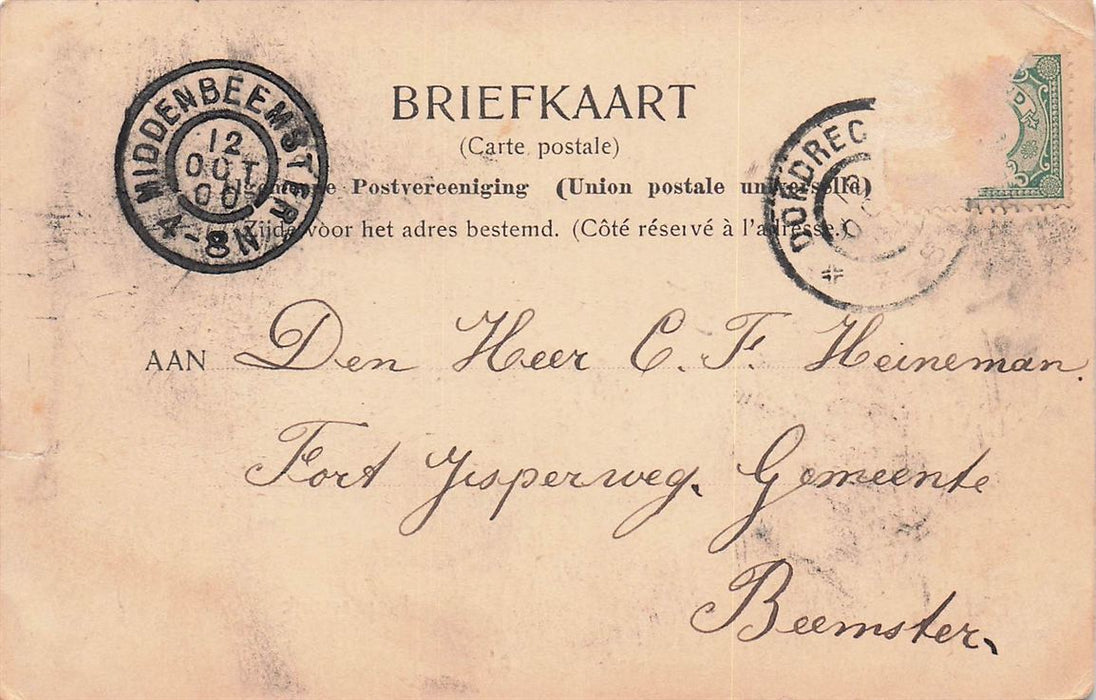 MIDDENBEEMSTER
12
OCT
00
4-8N
BRIEFKAART
(Carte postale)
Postvereeniging (Union postale universelle)
Zijde voor het adres bestemd. (Côté réservé à l'adresse.)
DORDREC
AAN Den Heer C. F. Heineman.
Fort Jisperweg. Gemeente
Beemster.